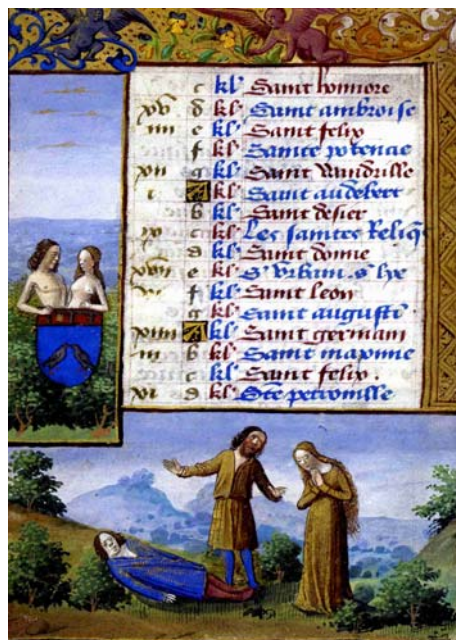 c kl' Saint honnore
xv d kl' Saint ambroise
iiii e kl' Saint felix
f kl' Saincte potencie
xii g kl' Saint Wandrille
i A kl' Saint audebert
b kl' Saint desier
c kl' Les sainctes Reliq
d kl' Saint donne
xvii e kl' S' Urbain . s'
f kl' Saint leon
g kl' Saint augusti
xiiii A kl' Saint germain
iii b kl' Saint
c kl' Saint felix .
xi d kl' Ste petronille